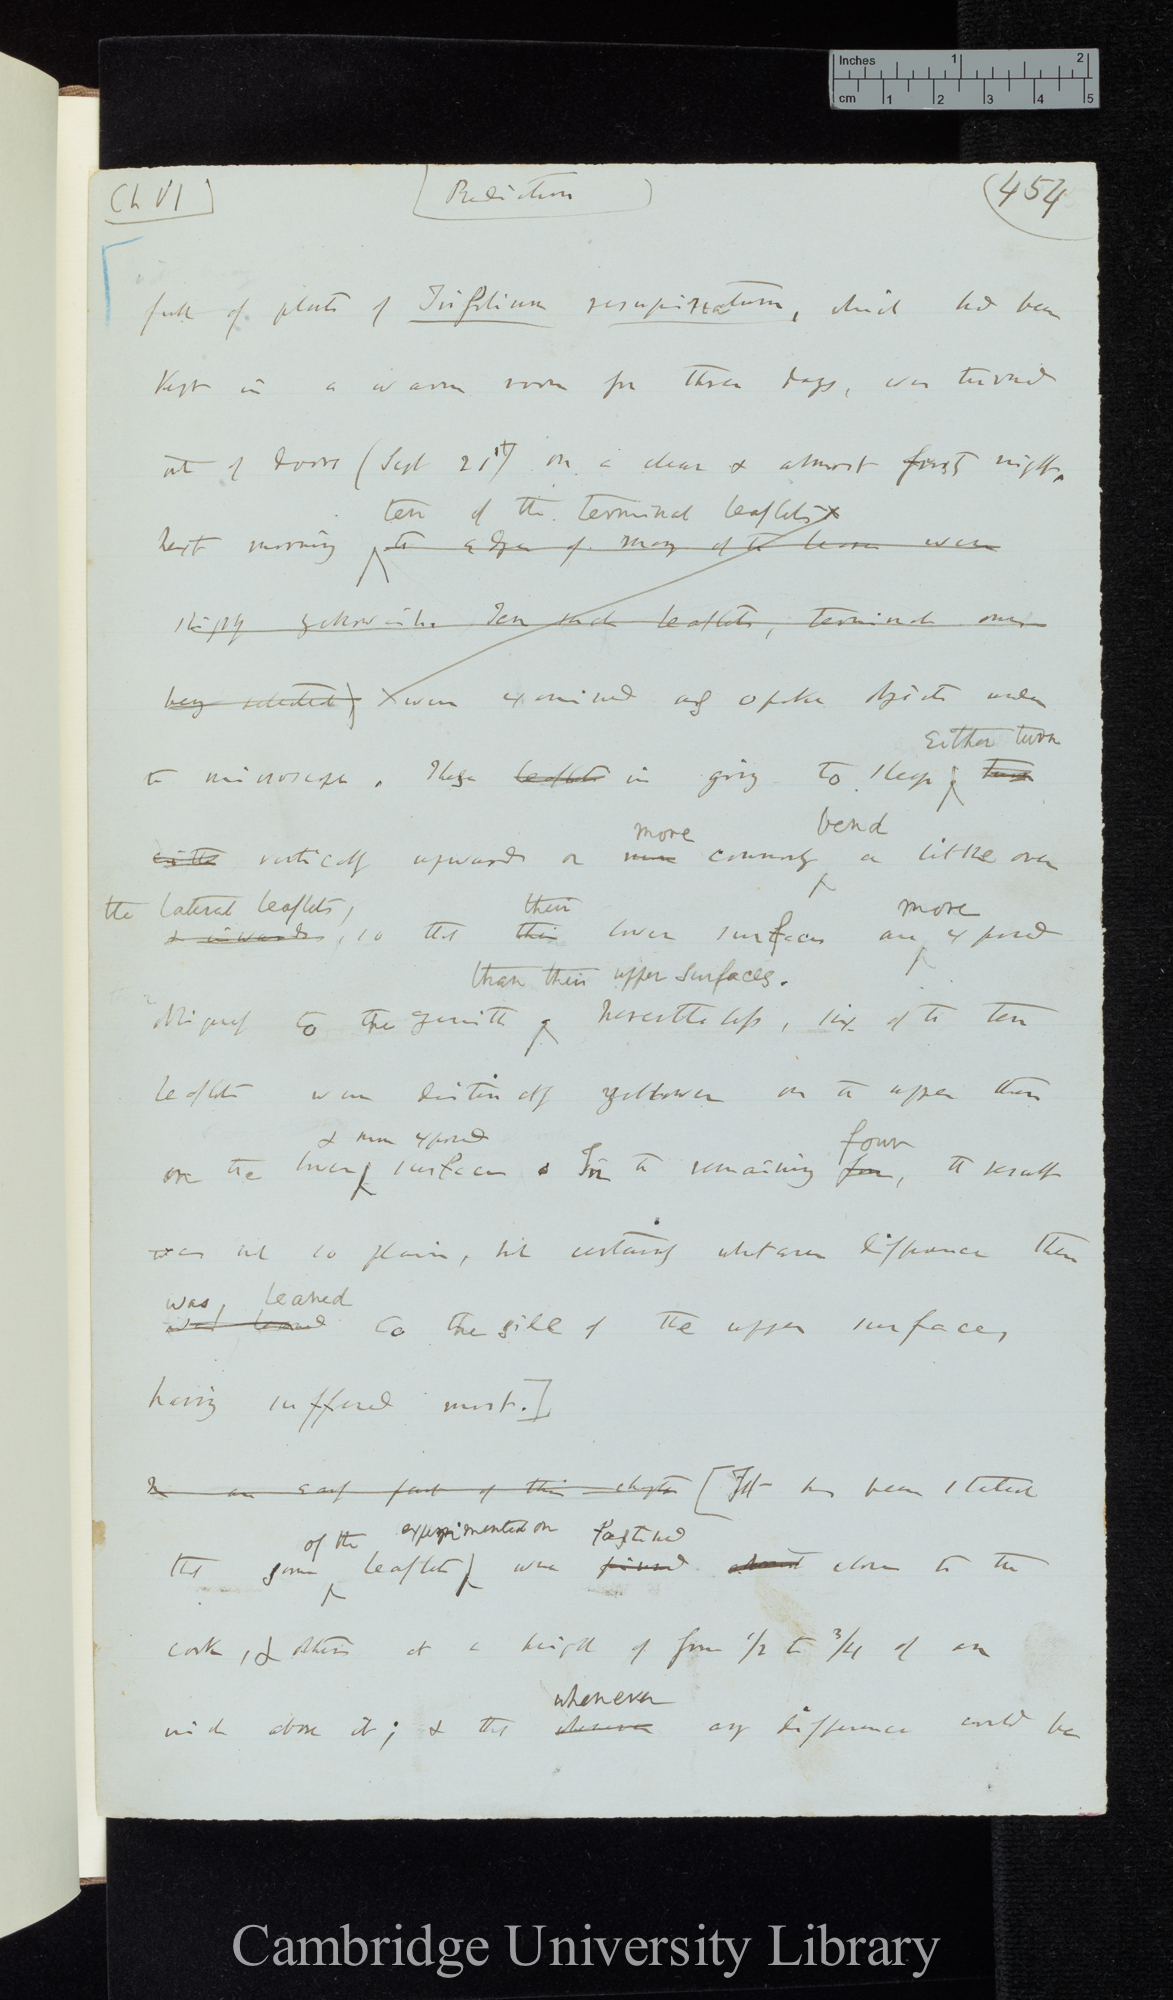 Inches 1 2
cm 1 2 3 4 5
Ch VI
Radiation
454
full of plants of Trifolium resupinatum, which had been
kept in a warm room for three days, was turned
out of doors (Sept 21st) on a clear & almost frosty night.
ten of the terminal leaflets x
Next morning the edges of many of the leaves were
slightly yellowish. Ten such leaflets, terminal ones
being selected, x were examined as opake objects under
either turn
the microscope. These leaflets in going to sleep, turn
more bend
either vertically upwards or more commonly a little over
the lateral leaflets, their more
& inwards, so that their lower surfaces are exposed
than their upper surfaces.
obliquely to the zenith. Nevertheless, six of the ten
leaflets were distinctly yellower on the upper than
& more exposed four
on the lower surfaces. In the remaining four, the result
was not so plain, but certainly whatever difference there
was, leaned
was leaned to the side of the upper surfaces
having suffered most.]
In an early part of this chapter [It has been stated
of the experimented on fastened
that some leaflets were pinned close to the
cork, & others at a height of from 1/2 to 3/4 of an
whenever
inch above it; & that whenever any difference could be
Cambridge University Library